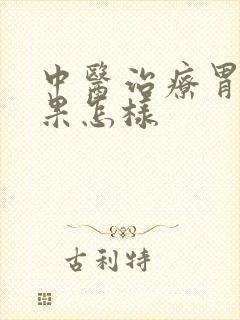 中醫治療胃
果怎樣
古利特